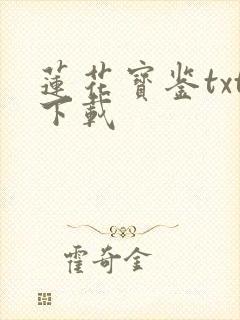 蓮花寶鉴txt
下載
霍奇金